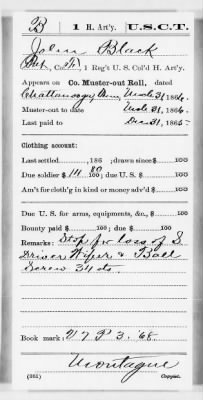 B | 1 H. Art'y. | U.S.C.T.
John Black
Pvt, Co. , 1 Reg't U. S. Col'd H. Art'y.
Appears on Co. Muster-out Roll, dated
Chattanooga Tenn, Mch 31, 1866.
Muster-out to date Mch 31, 1866.
Last paid to Dec 31, 1865.
Clothing account:
Last settled , 186 ; drawn since $ 100
Due soldier $ 14 80/100; due U. S. $ 100
Am't for cloth'g in kind or money adv'd $ 100
Due U. S. for arms, equipments, &c., $ 100
Bounty paid $ 100; due $ 100
Remarks: Stop for loss of S
Driver Wiper & Ball
Screw 34 cts.
Book mark: N 7 P 3. '68.
Montague
(361) Copyist.